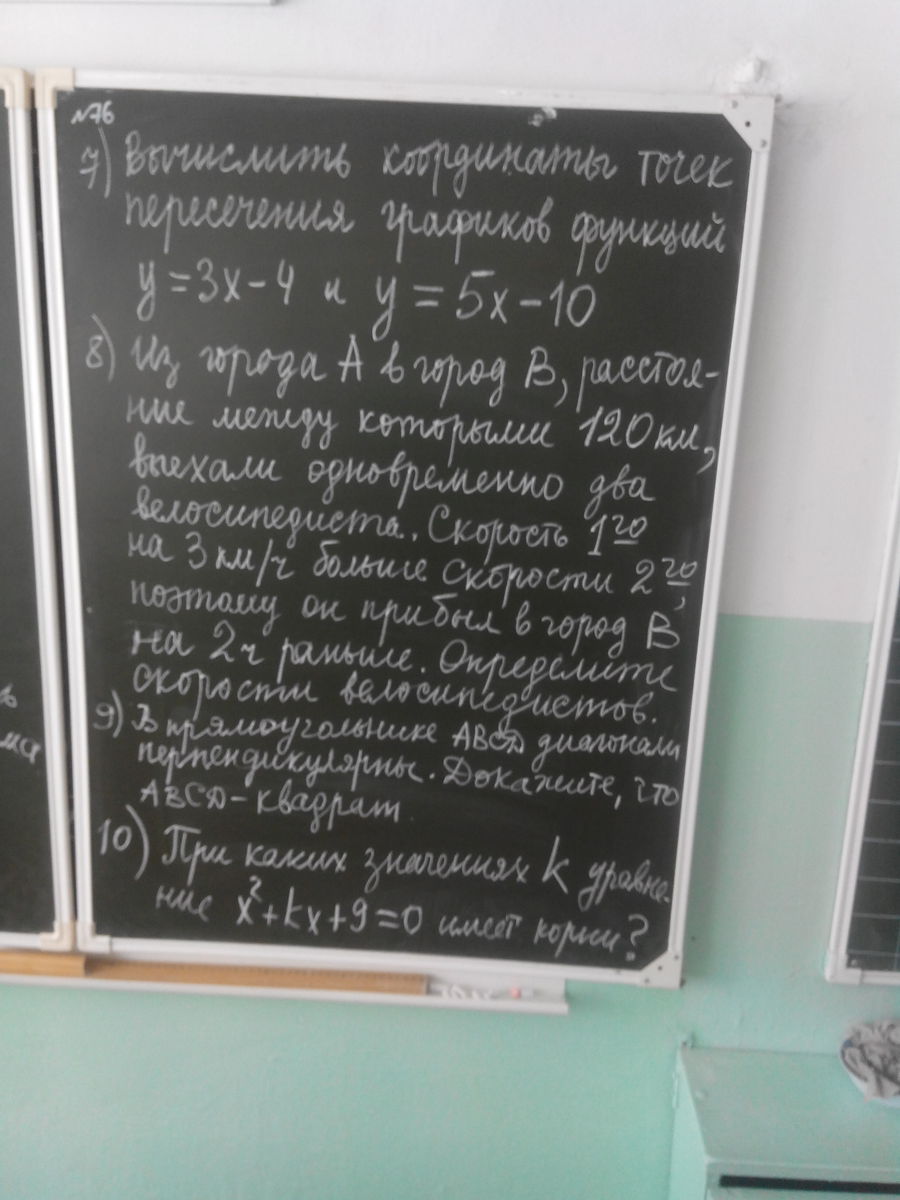 №76
7) Вычислить координаты точек
пересечения графиков функций
y=3x-4 и y=5x-10
8) Из города А в город В, расстоя-
ние между которыми 120 км,
выехали одновременно два
велосипедиста. Скорость 1го
на 3 км/ч больше скорости 2го,
поэтому он прибыл в город В
на 2ч раньше. Определите
скорости велосипедистов.
9) В прямоугольнике ABCD диагонали
перпендикулярны. Докажите, что
ABCD - квадрат
10) При каких значениях k уравне-
ние x²+kx+9=0 имеет корни?